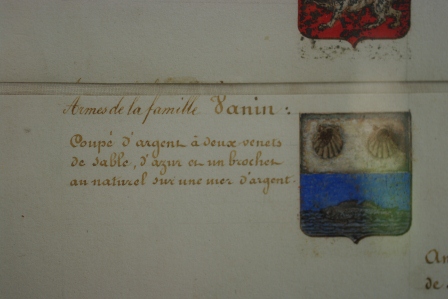 Armes de la famille Vanin :
Coupé d'argent à deux venets
de sable, d'azur et un brochet
au naturel sur une mer d'argent.
An
de